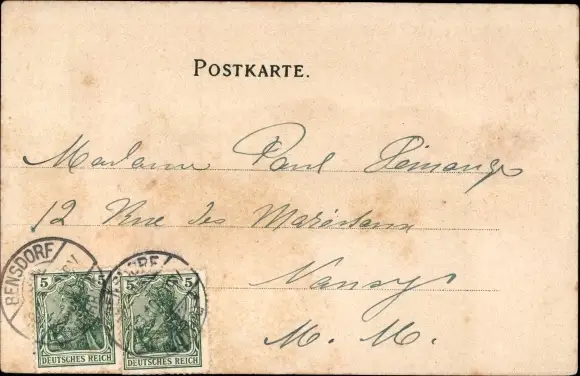 POSTKARTE.
Madame Paul
12 Rue des
Nancy
M. M.
BENSDORF
BENSDORF
5 5
5 5
DEUTSCHES REICH
DEUTSCHES REICH